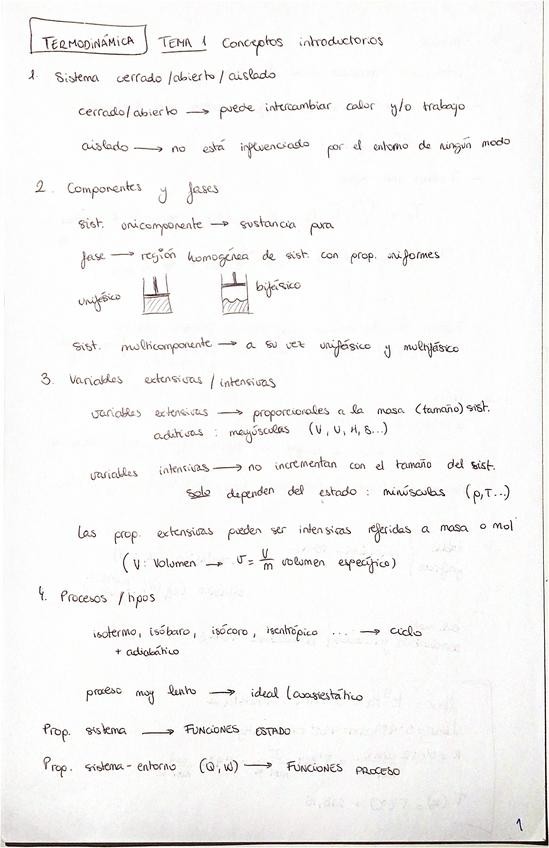 TERMODINÁMICA TEMA 1 Conceptos introductorios
1. Sistema cerrado /abierto / aislado
cerrado/abierto → puede intercambiar calor y/o trabajo
aislado → no está influenciado por el entorno de ningún modo
2. Componentes y fases
sist. unicomponente → sustancia pura
fase → región homogénea de sist. con prop. uniformes
unifásico bifásico
sist. multicomponente → a su vez unifásico y multifásico
3. Variables extensivas / intensivas
variables extensivas → proporcionales a la masa (tamaño) sist.
aditivas : mayúsculas (V, U, H, S...)
variables intensivas → no incrementan con el tamaño del sist.
solo dependen del estado : minúsculas (p, T...)
Las prop. extensivas pueden ser intensivas referidas a masa o mol
(V: Volumen → v = V/m volumen específico)
4. Procesos / tipos
isotermo, isóbaro, isócoro, isentrópico ... → ciclo
+ adiabático
proceso muy lento → ideal / cuasiestático
Prop. sistema → FUNCIONES ESTADO
Prop. sistema - entorno (Q, W) → FUNCIONES PROCESO
1